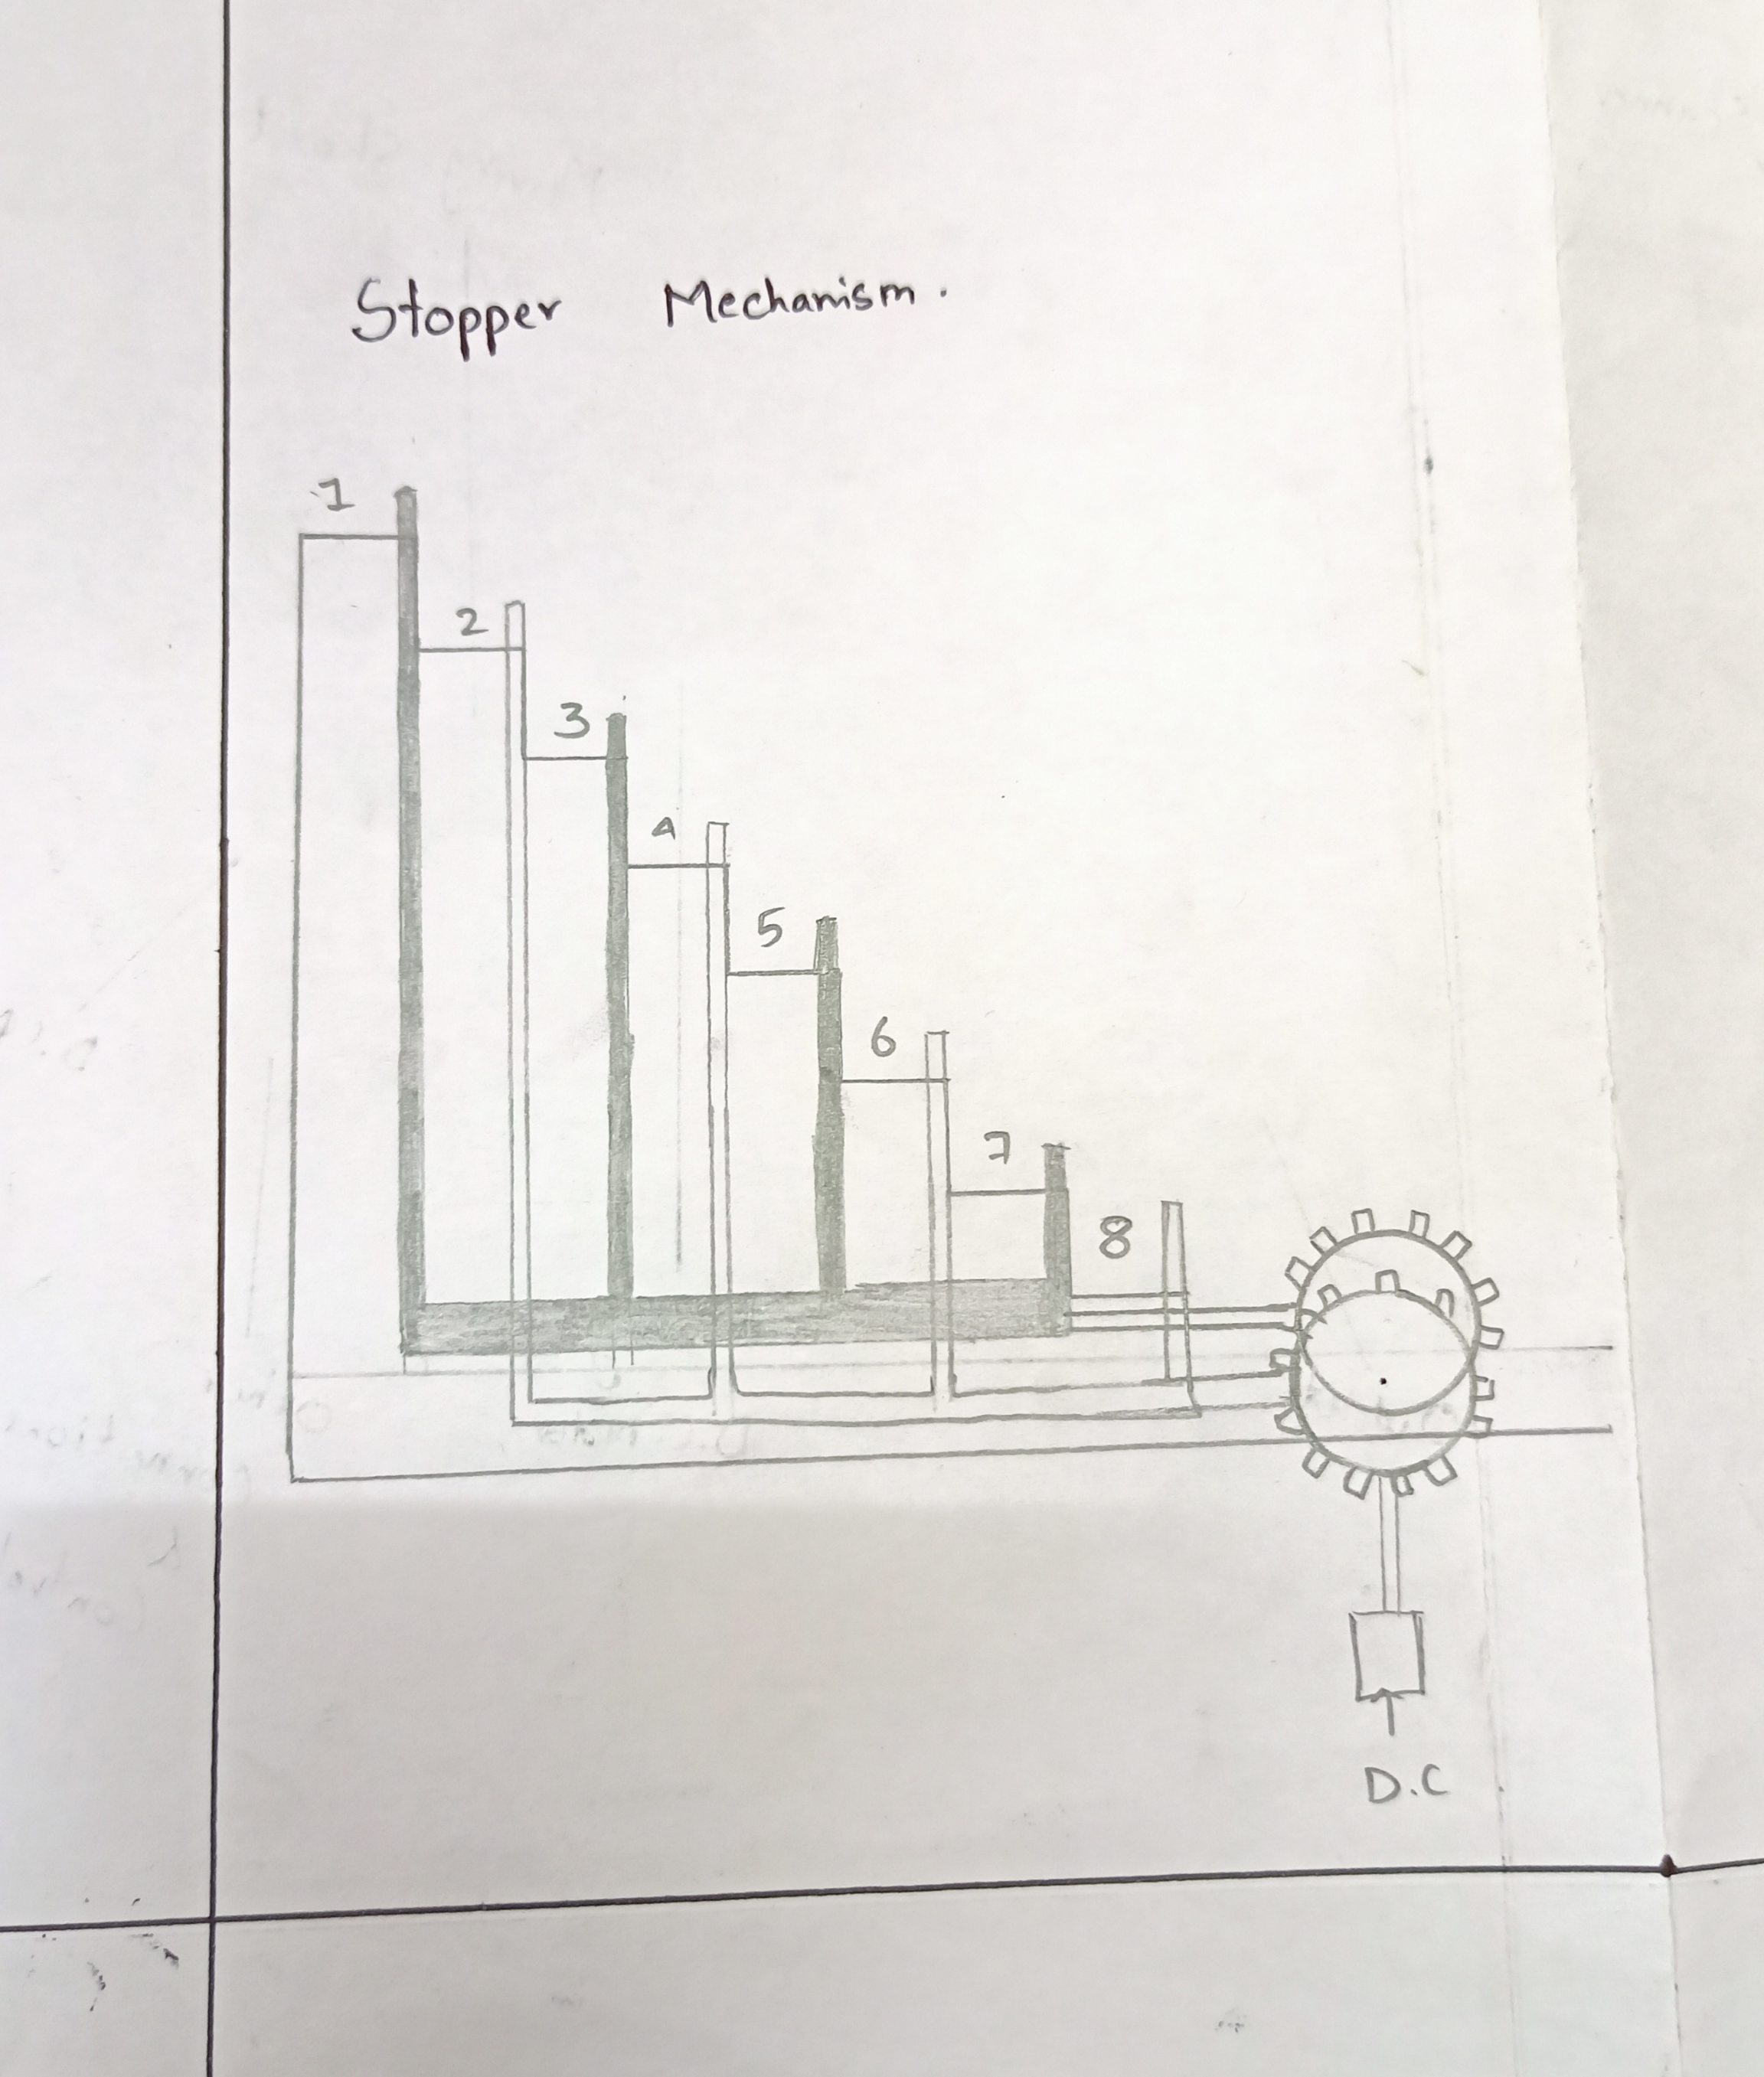 Stopper Mechanism.
1
2
3
4
5
6
7
8
D.C